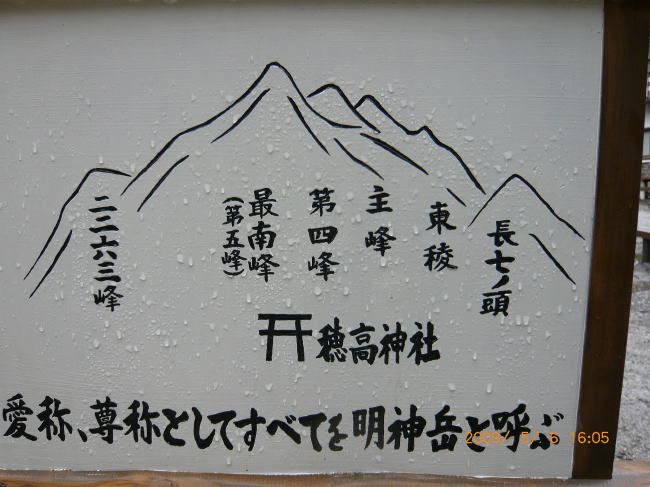 二二六三峰
最南峰
(第五峰)
第四峰
主峰
東稜
長七ノ頭
穂高神社
愛称、尊称としてすべてを明神岳と呼ぶ
16:05